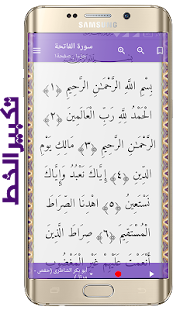 SAMSUNG
سورة الفاتحة
جزء١ , صفحة١
تكبير الخط
بِسْمِ اللَّهِ الرَّحْمَٰنِ الرَّحِيمِ ﴿١﴾
الْحَمْدُ لِلَّهِ رَبِّ الْعَالَمِينَ ﴿٢﴾
الرَّحْمَٰنِ الرَّحِيمِ ﴿٣﴾ مَالِكِ يَوْمِ
الدِّينِ ﴿٤﴾ إِيَّاكَ نَعْبُدُ وَإِيَّاكَ
نَسْتَعِينُ ﴿٥﴾ اهْدِنَا الصِّرَاطَ
الْمُسْتَقِيمَ ﴿٦﴾ صِرَاطَ الَّذِينَ
أَنْعَمْتَ عَلَيْهِمْ غَيْرِ الْمَغْضُوبِ
أبو بكر الشاطري (حفص